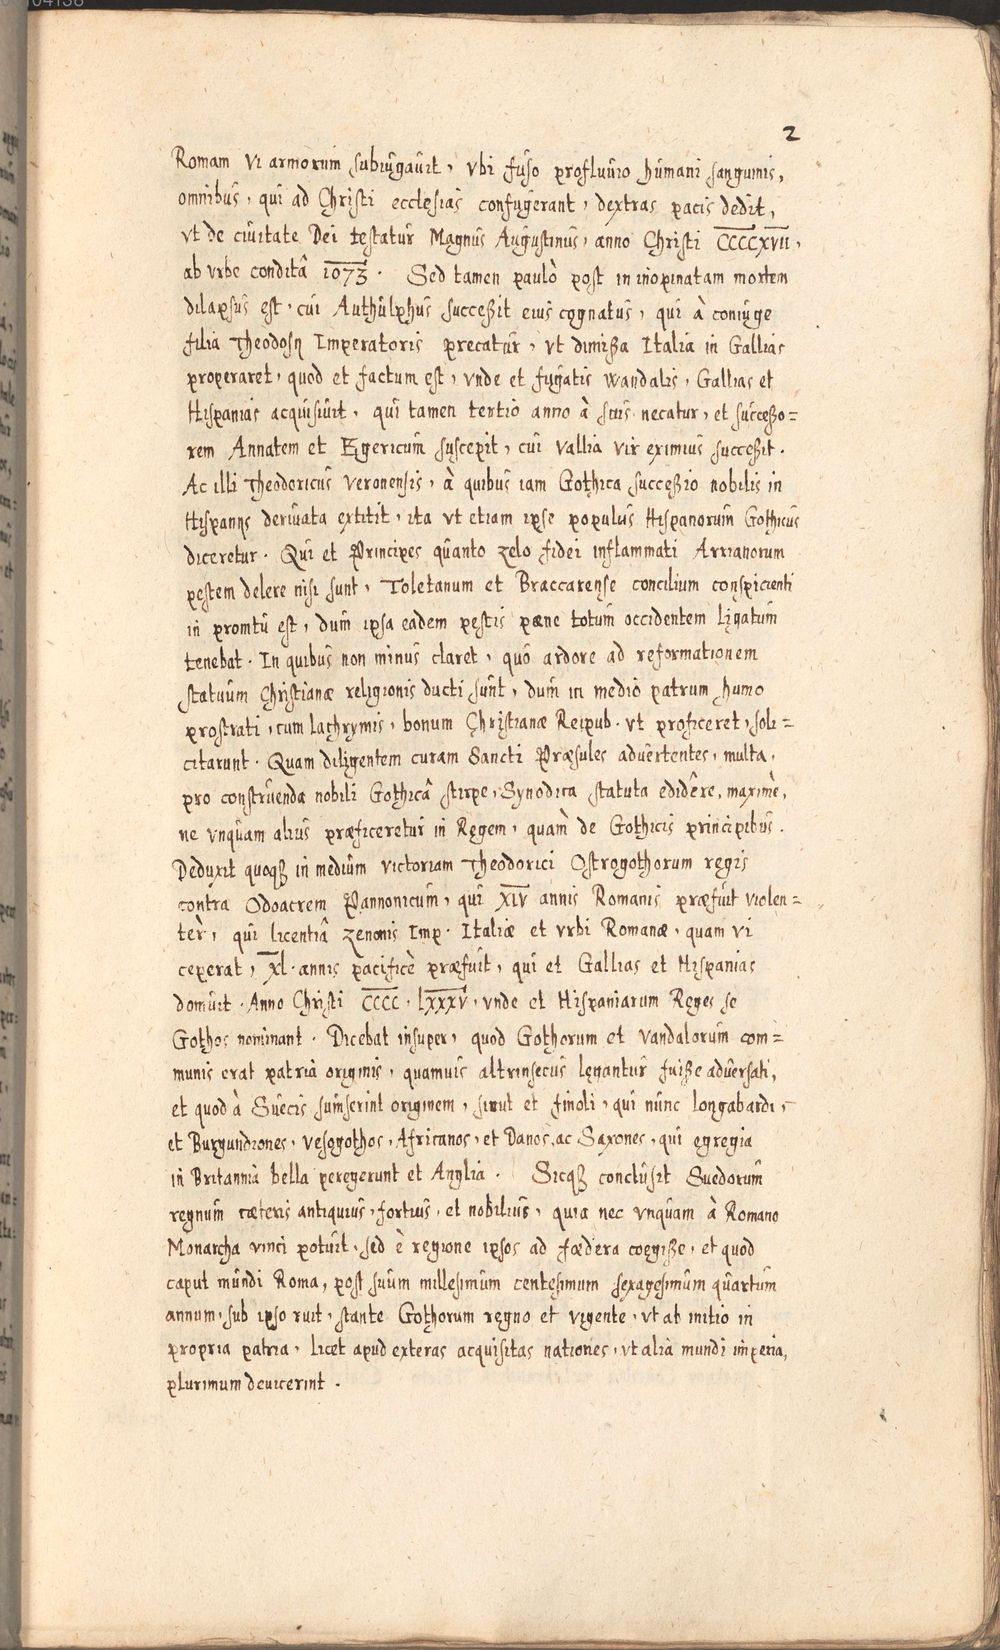 2
Romam vi armorum subiugauit, vbi fuso profluuio humani sanguinis,
omnibus, qui ad Christi ecclesias confugerant, dextras pacis dedit,
vt de ciuitate Dei testatur Magnus Augustinus, anno Christi CCCCXVII,
ab vrbe condita 1073. Sed tamen paulò post in inopinatam mortem
dilapsus est, cui Authulphus successit eius cognatus, qui à coniuge
filia Theodosij Imperatoris precatur, vt dimissa Italia in Gallias
properaret, quod et factum est, vnde et fugatis wandalis, Gallias et
Hispanias acquisiuit, qui tamen tertio anno à suis necatur, et successo=
rem Annatem et Egericum suscepit, cui Vallia vir eximius successit.
Ac illi Theodoricus Veronensis, à quibus iam Gothica successio nobilis in
Hispanijs deriuata extitit, ita vt etiam ipse populus Hispanorum Gothicus
diceretur. Qui et Principes quanto zelo fidei inflammati Arrianorum
pestem delere nisi sunt, Toletanum et Braccarense concilium conspicienti
in promtu est, dum ipsa eadem pestis pæne totum occidentem ligatum
tenebat. In quibus non minus claret, quo ardore ad reformationem
statuum Christianæ religionis ducti sunt, dum in medio patrum humo
prostrati, cum lachrymis, bonum Christianæ Reipub. vt proficeret, soli=
citarunt. Quam diligentem curam Sancti Præsules aduertentes, multa,
pro construenda nobili Gothicâ stirpe, Synodica statuta edidêre, maximè,
ne vnquam alius præficeretur in Regem, quàm de Gothicis principibus.
Deduxit quoqȝ in medium victoriam Theodorici Ostrogothorum regis
contra Odoacrem Pannonicum, qui XIV annis Romanis præfuit violen=
tèr, qui licentiâ Zenonis Imp. Italiæ et vrbi Romanæ, quam vi
ceperat, XL. annis pacificè præfuit, qui et Gallias et Hispanias
domuit. Anno Christi CCCC. LXXXV, vnde et Hispaniarum Reges se
Gothos nominant. Dicebat insuper, quod Gothorum et Vandalorum com=
munis erat patria originis, quamuis altrinsecus legantur fuisse aduersati,
et quod à Suecis sumserint originem, sicut et finoli, qui nunc longabardi,
et Burgundiones, vesogothos, Africanos, et Danos, ac Saxones, qui egregia
in Britannia bella peregerunt et Anglia. Sicqȝ conclusit Suedorum
regnum cæteris antiquius, fortius, et nobilius, quia nec vnquam à Romano
Monarcha vinci potuit, sed è regione ipsos ad fœdera coegisse, et quod
caput mundi Roma, post suum millesimum centesimum sexagesimum quartum
annum, sub ipso ruit, stante Gothorum regno et vigente, vt ab initio in
propria patria, licet apud exteras acquisitas nationes, vt alia mundi imperia,
plurimum deuicerint.